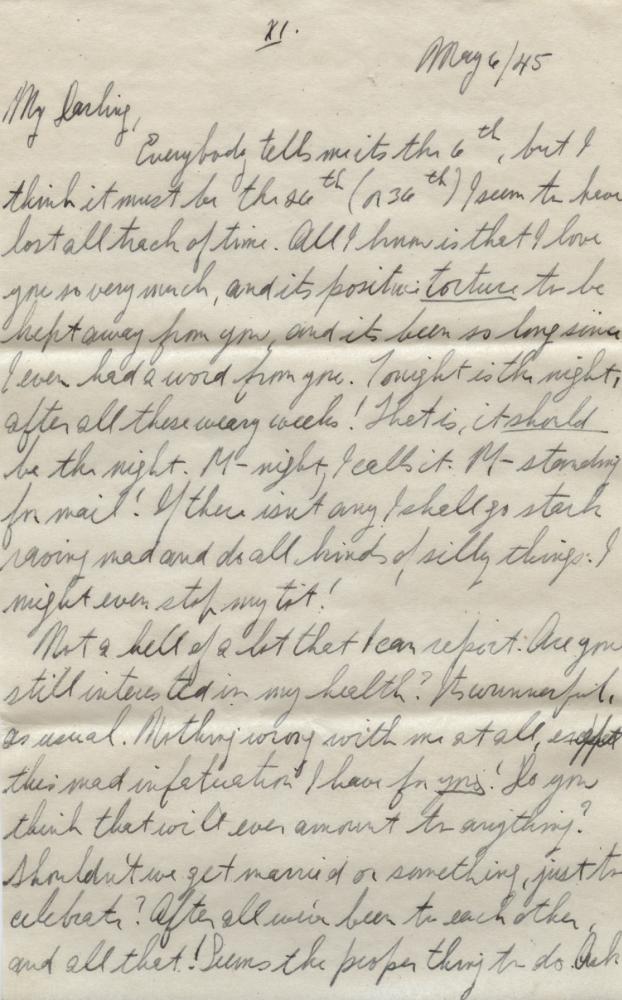 XI.
May 6/45
My Darling,
Everybody tells me its the 6th, but I
think it must be the 26th (or 36th) I seem to have
lost all track of time. All I know is that I love
you so very much, and its positive torture to be
kept away from you, and its been so long since
I even had a word from you. Tonight is the night,
after all these weary weeks! That is, it should
be the night. M-night, I calls it. M- standing
for mail! If there isn't any I shall go stark
raving mad and do all kinds of silly things. I
might even stop my tot!
Not a hell of a lot that I can report. Are you
still interested in my health? Its wunnerful,
as usual. Nothing wrong with me at all, except
this mad infatuation I have for you! Do you
think that will ever amount to anything?
Shouldn't we get married or something, just to
celebrate? After all we've been to each other,
and all that! Seems the proper thing to do. Ask